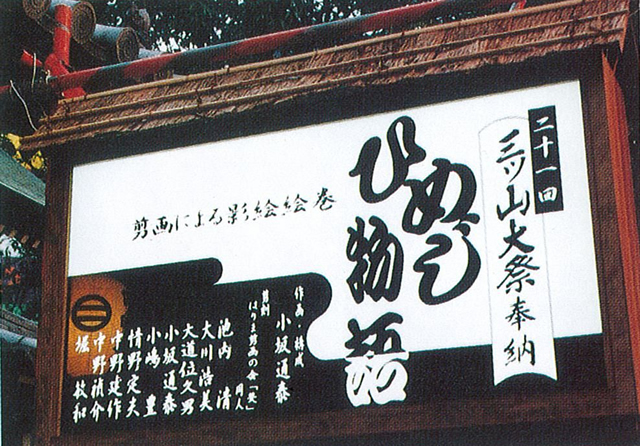 二十一回
三ツ山大祭奉納
ひめじ
物語
剪画による影絵絵巻
作画・構成
小坂道泰
剪刻
はりま剪画の会「矢」同人
池内 清
大川浩美
大道位久男
小坂道泰
小嶋 豊
情野定夫
中野建作
中野禎介
堀 枝和